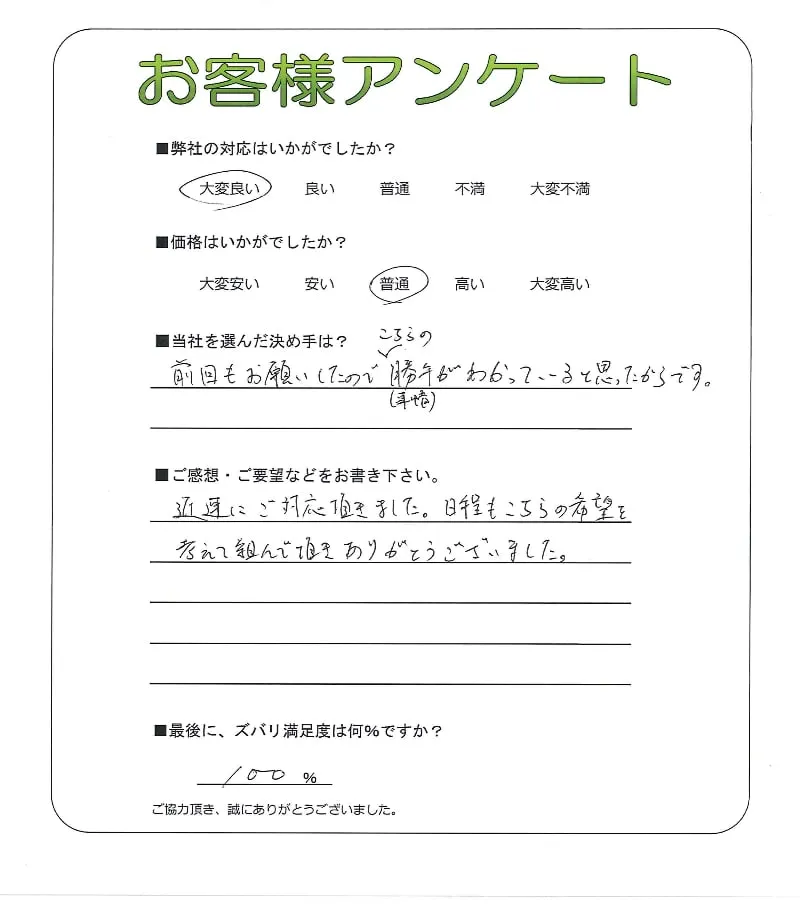 お客様アンケート
■弊社の対応はいかがでしたか?
大変良い 良い 普通 不満 大変不満
■価格はいかがでしたか?
大変安い 安い 普通 高い 大変高い
■当社を選んだ決め手は?
こちらの
前回もお願いしたので勝手がわかっていると思ったからです。
(事情)
■ご感想・ご要望などをお書き下さい。
迅速にご対応頂きました。日程もこちらの希望を
考えて組んで頂きありがとうございました。
■最後に、ズバリ満足度は何%ですか?
100 %
ご協力頂き、誠にありがとうございました。